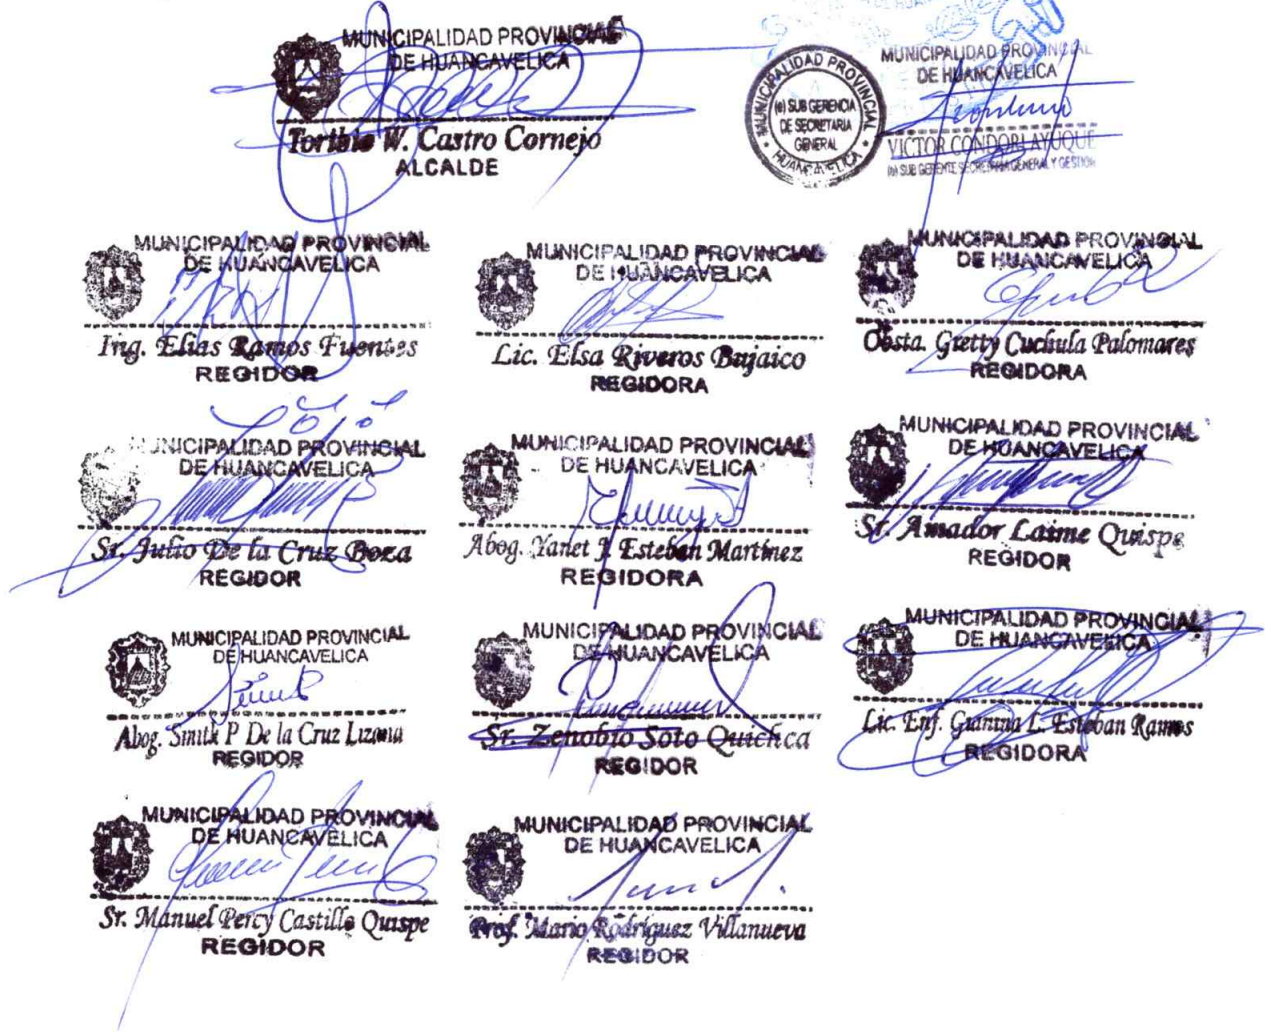 MUNICIPALIDAD PROVINCIAL
DE HUANCAVELICA
Toribio W. Castro Cornejo
ALCALDE
MUNICIPALIDAD PROVINCIAL
(e) SUB GERENCIA
DE SECRETARIA
GENERAL
HUANCAVELICA
MUNICIPALIDAD PROVINCIAL
DE HUANCAVELICA
VICTOR CONDORI AYUQUE
(e) SUB GERENTE SECRETARIA GENERAL Y GESTION
MUNICIPALIDAD PROVINCIAL
DE HUANCAVELICA
Ing. Elias Ramos Fuentes
REGIDOR
MUNICIPALIDAD PROVINCIAL
DE HUANCAVELICA
Lic. Elsa Riveros Bujaico
REGIDORA
MUNICIPALIDAD PROVINCIAL
DE HUANCAVELICA
Obsta. Gretty Cuchula Palomares
REGIDORA
MUNICIPALIDAD PROVINCIAL
DE HUANCAVELICA
Sr. Julio De la Cruz Boza
REGIDOR
MUNICIPALIDAD PROVINCIAL
DE HUANCAVELICA
Abog. Yanet J. Esteban Martínez
REGIDORA
MUNICIPALIDAD PROVINCIAL
DE HUANCAVELICA
Sr. Amador Laime Quispe
REGIDOR
MUNICIPALIDAD PROVINCIAL
DE HUANCAVELICA
Abog. Smith P De la Cruz Lizana
REGIDOR
MUNICIPALIDAD PROVINCIAL
DE HUANCAVELICA
Sr. Zenobio Soto Quichca
REGIDOR
MUNICIPALIDAD PROVINCIAL
DE HUANCAVELICA
Lic. Enf. Gianina L. Esteban Ramos
REGIDORA
MUNICIPALIDAD PROVINCIAL
DE HUANCAVELICA
Sr. Manuel Percy Castillo Quispe
REGIDOR
MUNICIPALIDAD PROVINCIAL
DE HUANCAVELICA
Prof. Mario Rodríguez Villanueva
REGIDOR